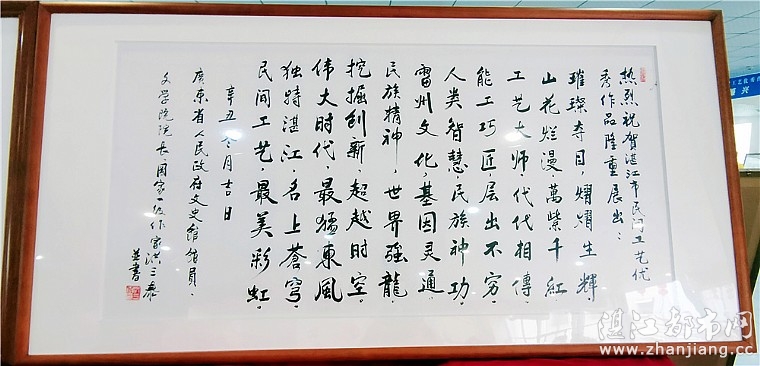 热烈祝贺湛江市民间工艺代
秀作品隆重展出：
璀璨夺目，熠熠生輝
山花烂漫萬紫千红
工艺大师代代相傳，
能工巧匠，层出不穷，
人类智慧，民族神功，
雷州文化，基因灵通，
民族精神，世界强龍，
挖掘创新，超越时空，
伟大时代，最猛東風
独特湛江，名上蒼穹，
民间工艺，最美彩虹，
辛丑冬月吉日
廣東省人民政府文史馆馆员，
文学院院长，国家一级作家洪三泰
并書
湛江都市网
www.zhanjiang.cc